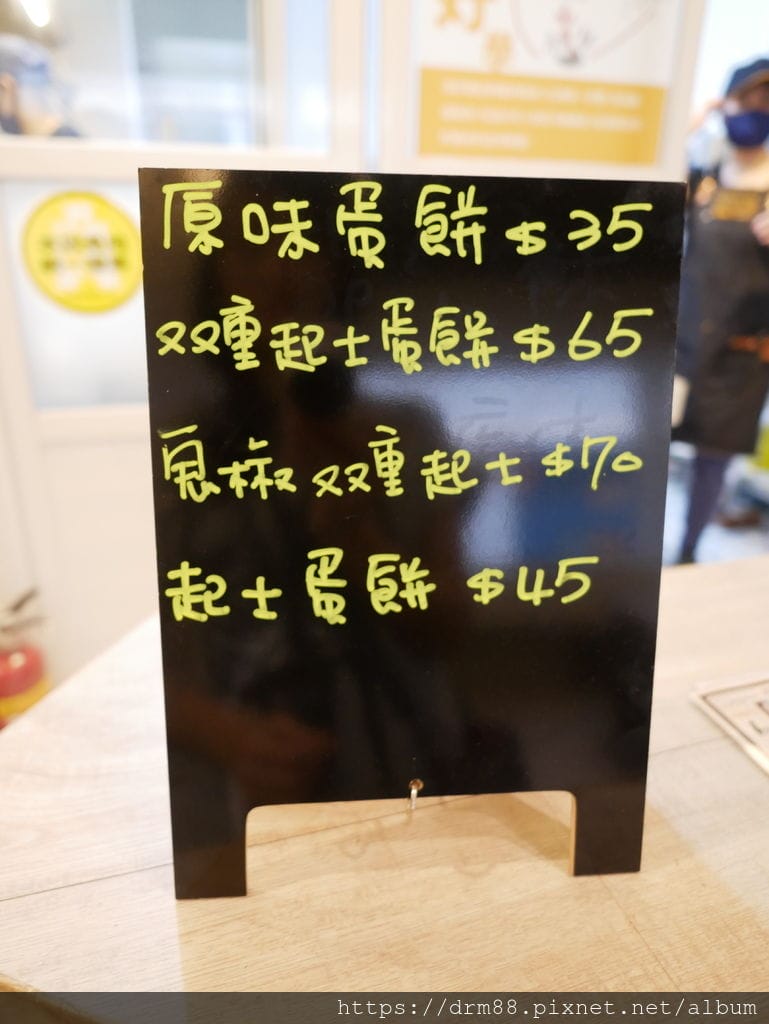 好
原味蛋餅 $35
双重起士蛋餅 $65
双重起士 $70
起士蛋餅 $45
https://drm88.pixnet.net/album